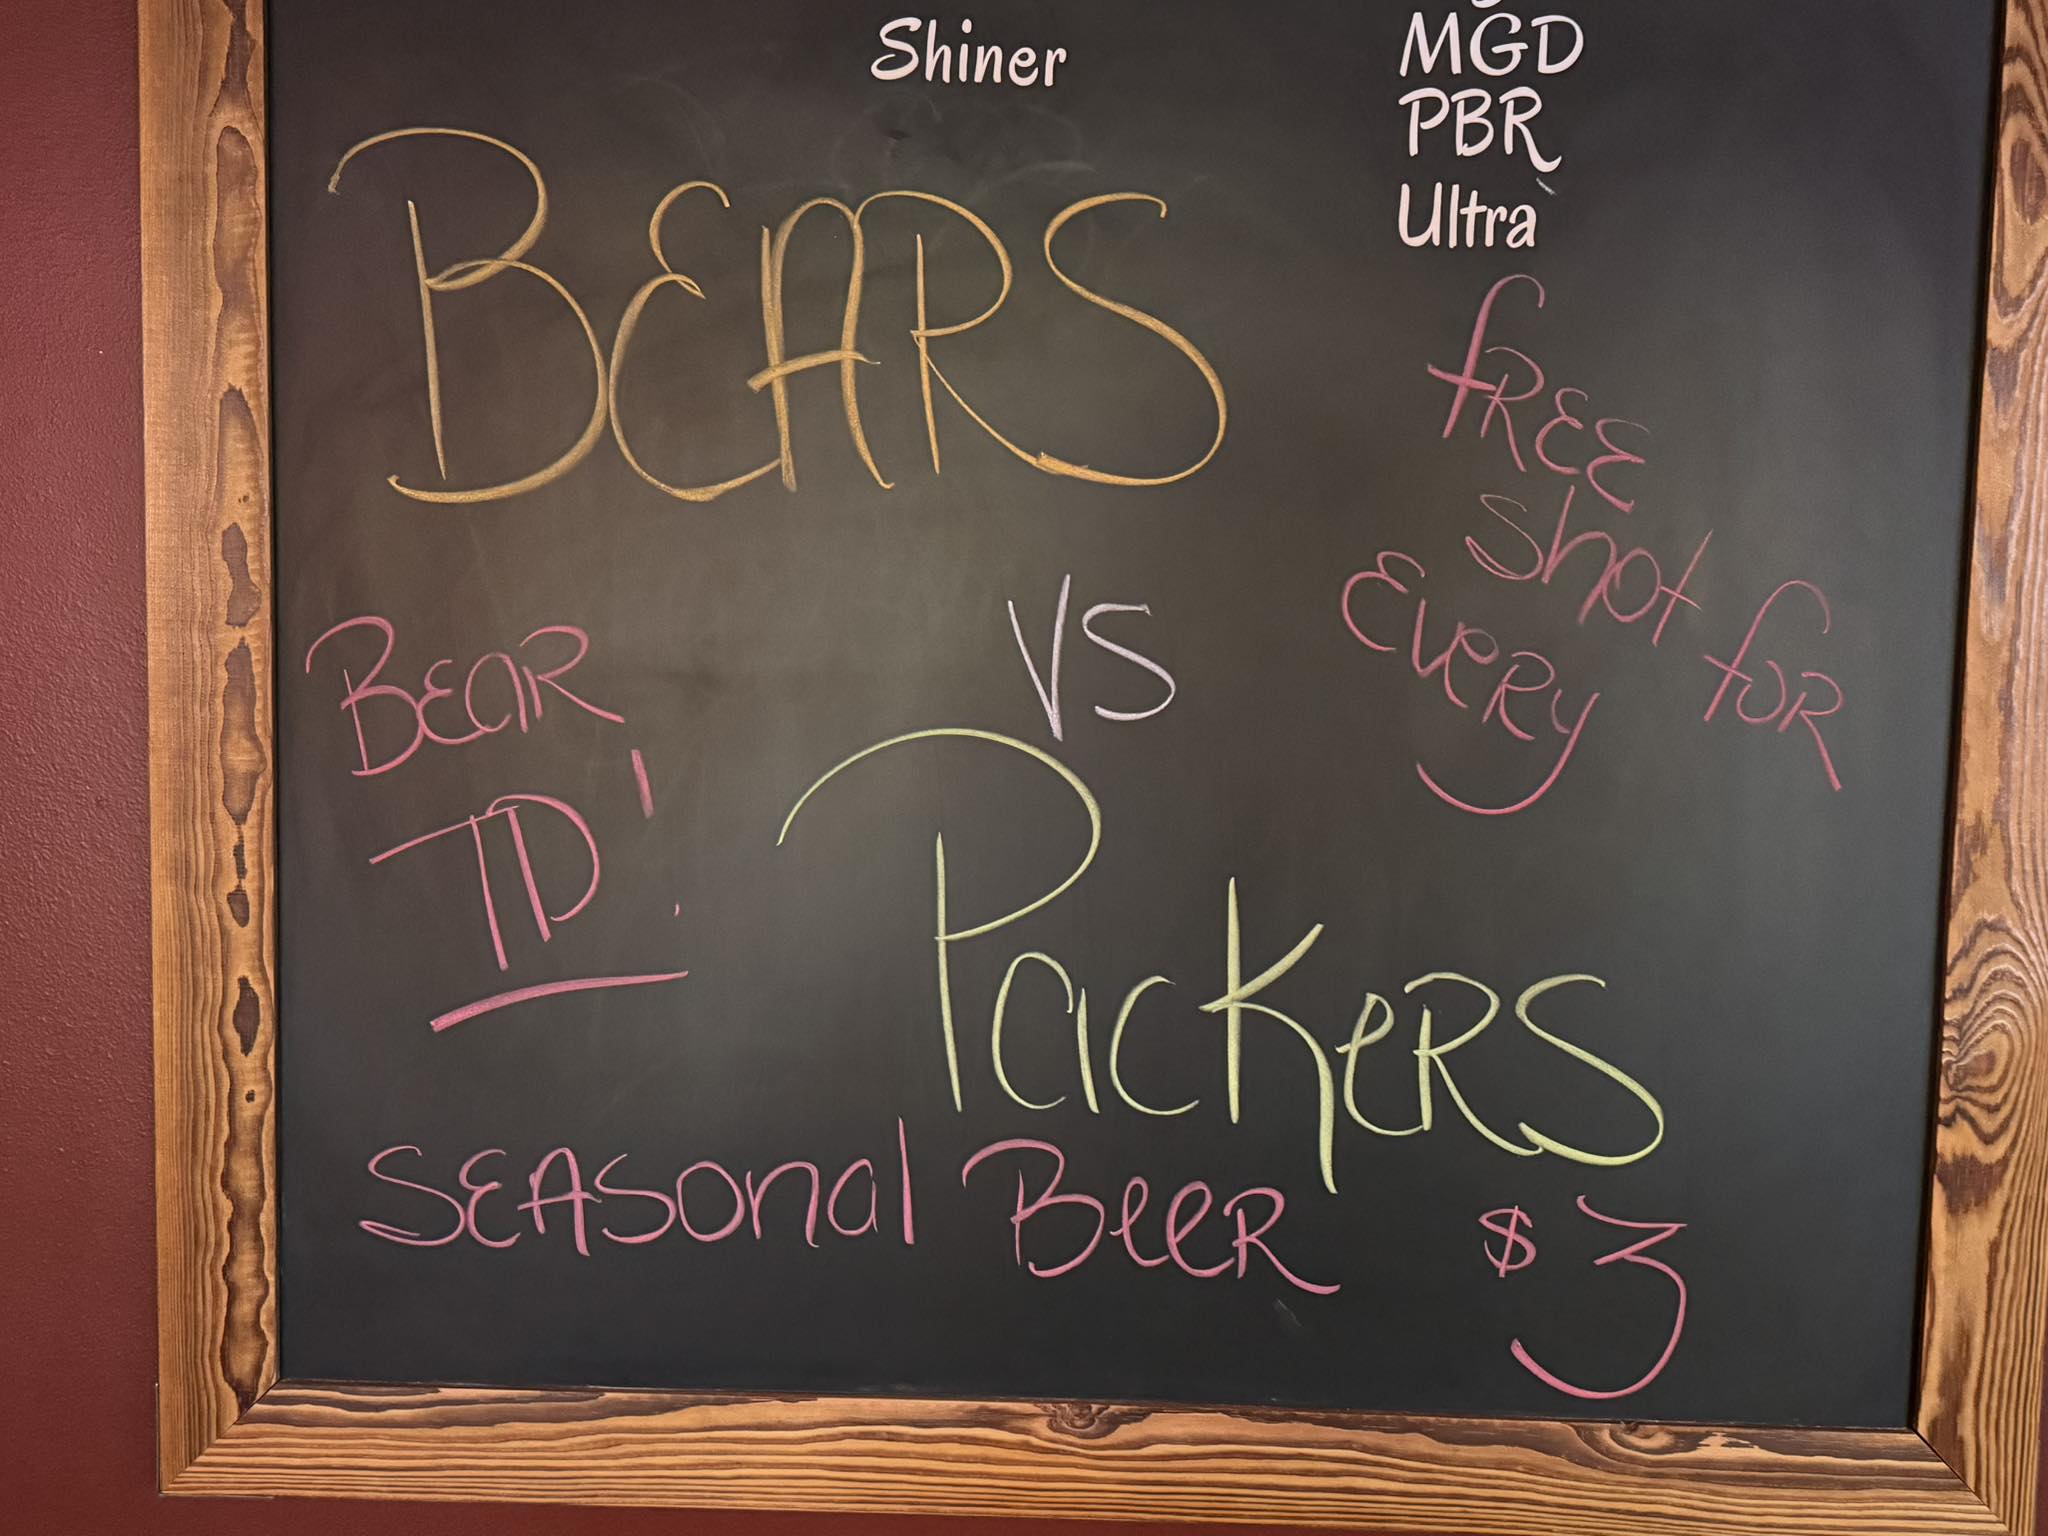 Shiner
MGD
PBR
Ultra
BEARS
fREE
shot for
EVERY
BEAR
TD!
VS
PacKeRS
SEASonal BeeR $3